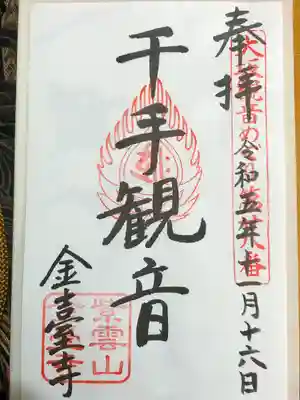 奉拝
令和五年十一月十六日
千手観音
金臺寺
紫雲山